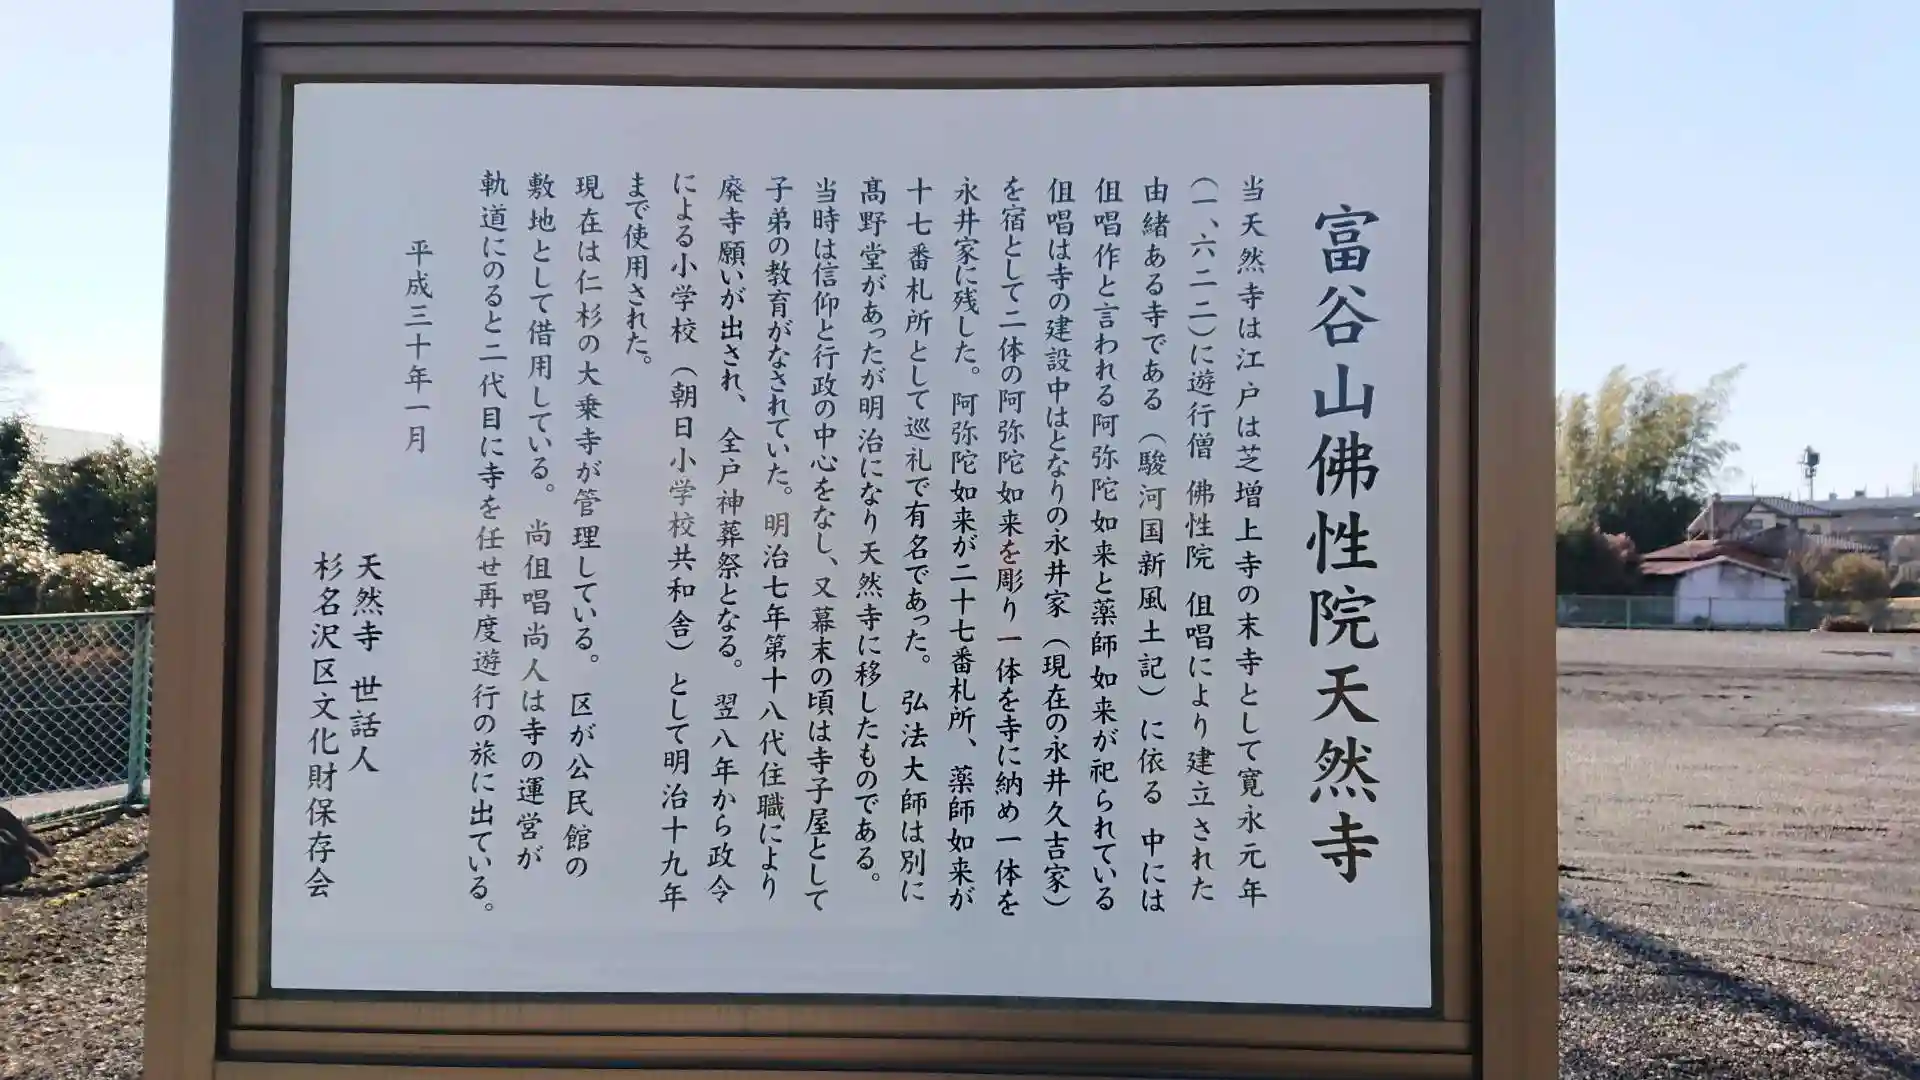 富谷山佛性院天然寺
当天然寺は江戸は芝増上寺の末寺として寛永元年
(一、六二二)に遊行僧 佛性院 但唱により建立された
由緒ある寺である（駿河国新風土記）に依る 中には
但唱作と言われる阿弥陀如来と薬師如来が祀られている
但唱は寺の建設中はとなりの永井家（現在の永井久吉家）
を宿として二体の阿弥陀如来を彫り一体を寺に納め一体を
永井家に残した。阿弥陀如来が二十七番札所、薬師如来が
十七番札所として巡礼で有名であった。弘法大師は別に
髙野堂があったが明治になり天然寺に移したものである。
当時は信仰と行政の中心をなし、又幕末の頃は寺子屋として
子弟の教育がなされていた。明治七年第十八代住職により
廃寺願いが出され、全戸神葬祭となる。翌八年から政令
による小学校（朝日小学校共和舎）として明治十九年
まで使用された。
現在は仁杉の大乗寺が管理している。区が公民館の
敷地として借用している。尚但唱尚人は寺の運営が
軌道にのると二代目に寺を任せ再度遊行の旅に出ている。
平成三十年一月
天然寺 世話人
杉名沢区文化財保存会